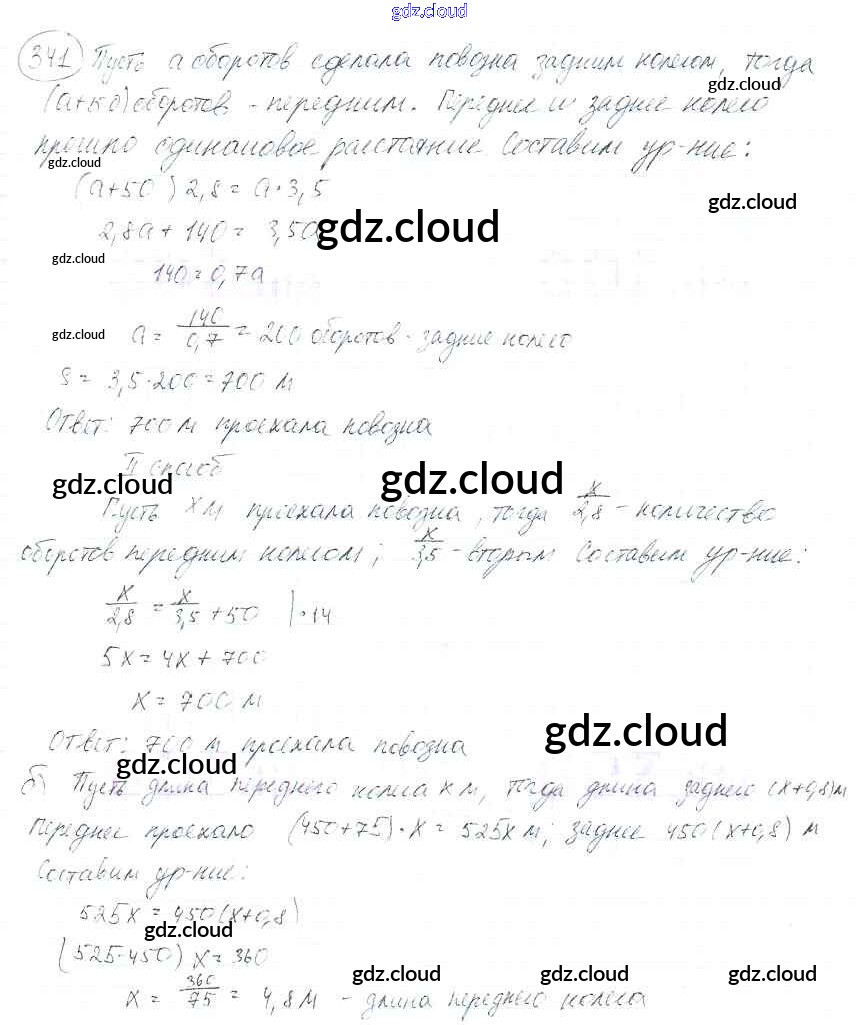 gdz.cloud
341 Пусть а оборотов сделала повозка задним колесом, тогда
gdz.cloud
(а+50) оборотов - передним. Переднее и заднее колесо
прошло одинаковое расстояние Составим ур-ние:
gdz.cloud
(а+50) 2,8 = а·3,5
gdz.cloud
2,8а + 140 = 3,5а
gdz.cloud
gdz.cloud
140 = 0,7а
gdz.cloud
а = 140/0,7 = 200 оборотов - заднее колесо
S = 3,5·200 = 700 м
Ответ: 700 м проехала повозка
II способ
gdz.cloud
gdz.cloud
Пусть х м проехала повозка, тогда х/2,8 - количество
оборотов передним колесом; х/3,5 - вторым Составим ур-ние:
х/2,8 = х/3,5 + 50 |·14
5х = 4х + 700
х = 700 м
gdz.cloud
Ответ: 700 м проехала повозка
gdz.cloud
б) Пусть длина переднего колеса х м, тогда длина заднего (х+0,8)м
Переднее проехало (450+75)·х = 525х м; заднее 450(х+0,8) м
Составим ур-ние:
525х = 450(х+0,8)
gdz.cloud
(525-450) х = 360
gdz.cloud gdz.cloud gdz.cloud
х = 360/75 = 4,8 м - длина переднего колеса